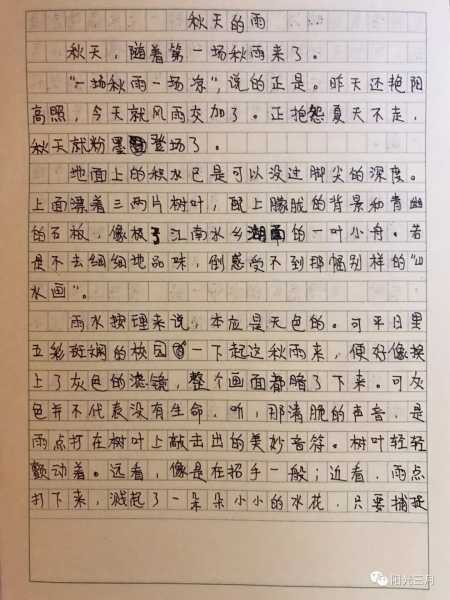 秋天的雨
秋天，随着第一场秋雨来了。
"一场秋雨一场凉"，说的正是。昨天还艳阳
高照，今天就风雨交加了。正抱怨夏天不走，
秋天就粉墨登场了。
地面上的积水已是可以没过脚尖的深度。
上面漂着三两片树叶，配上朦胧的背景和青幽
的石板，像极了江南水乡湖面的一叶小舟。若
是不去细细地品味，倒感受不到那幅别样的"山
水画"。
雨水按理来说，本应是无色的。可平日里
五彩斑斓的校园一下起这秋雨来，便好像换
上了灰色的滤镜，整个画面都暗了下来。可灰
色并不代表没有生命，听，那清脆的声音，是
雨点打在树叶上敲击出的美妙音符。树叶轻轻
颤动着。远看，像是在招手一般；近看，雨点
打下来，溅起了一朵朵小小的水花，只要捕捉
阳光三月